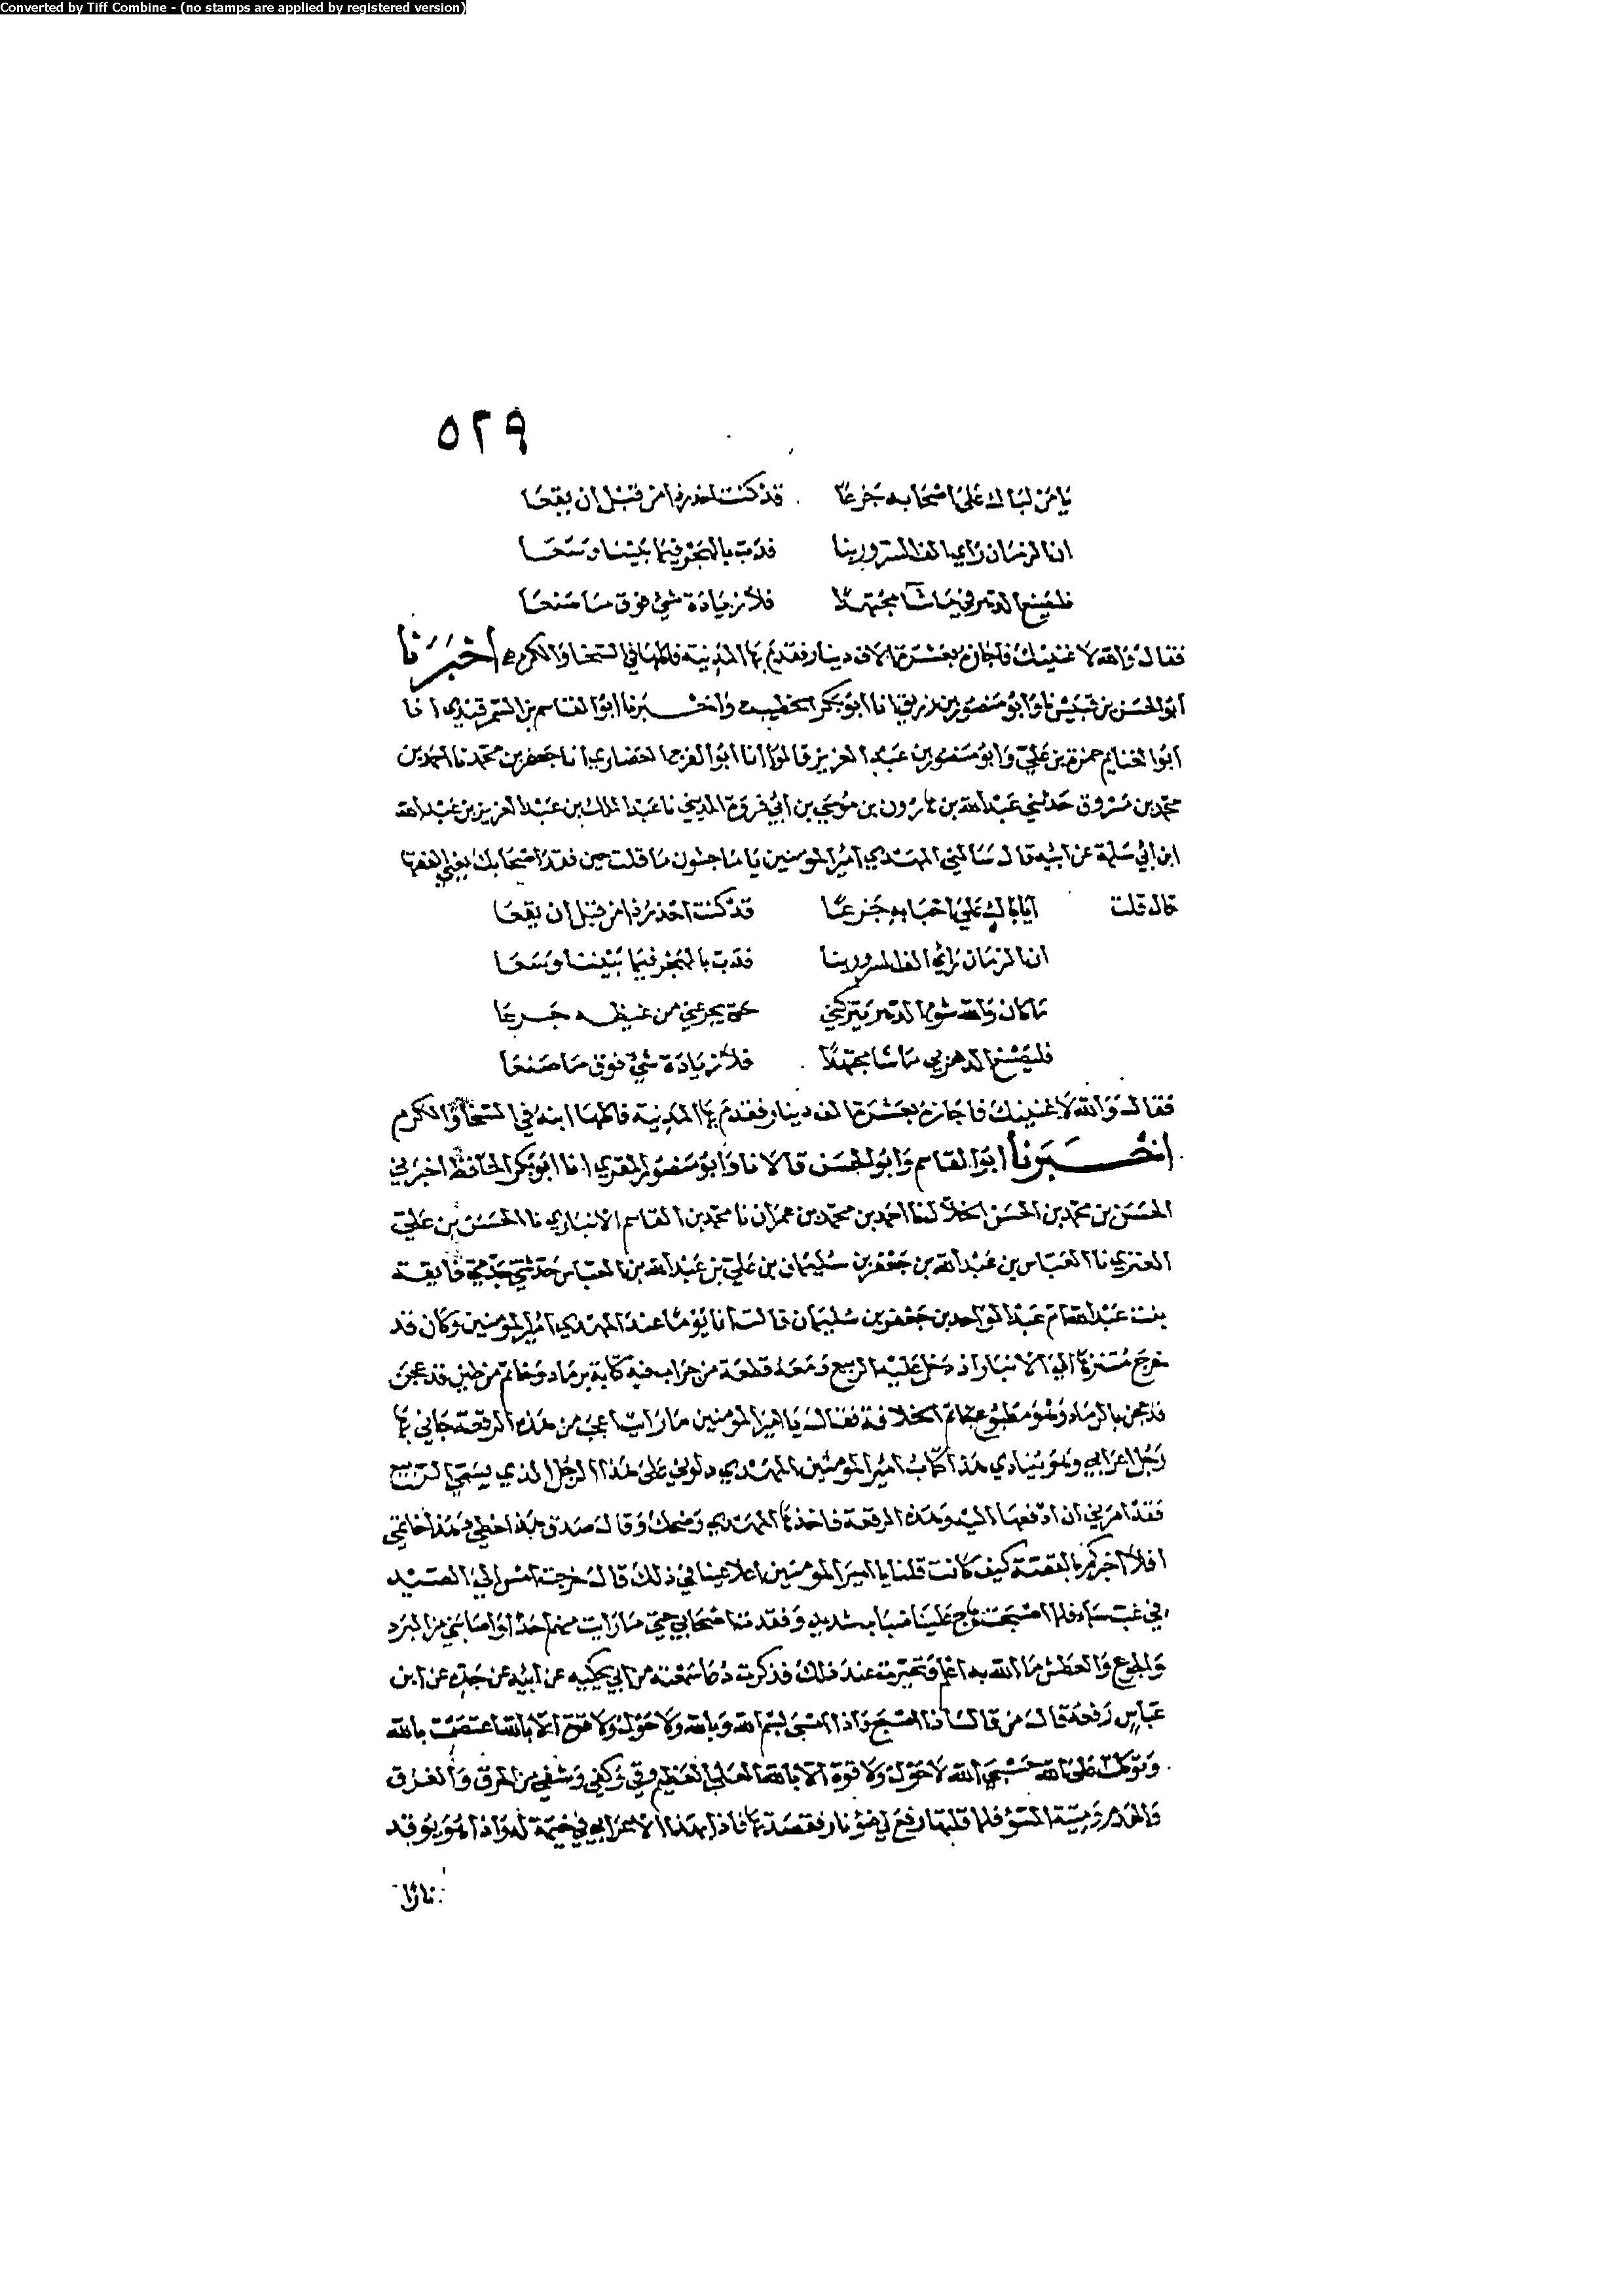 Converted by Tiff Combine - (no stamps are applied by registered version)
٥٢٩
يا من لباك على اصحابه جزعا قد كنت احذر ذا من قبل ان يقعا
ان الزمان راى الف السرور بنا فدب بالهجر فيما بيننا وسعا
فليصنع الدهر بي ما شا مجتهدا فلا زيادة شي فوق ما صنعا
فقال والله لاغنينك فاجازه بعشرة الاف دينار فقدم بها المدينة فاكلها في السخا والكرم اخبرنا
ابو الحسن بن قبيس نا وابو منصور بن زريق انا ابو بكر الخطيب واخبرنا ابو القاسم بن السمرقندي انا
ابو الغنايم حمزة بن علي وابو منصور بن عبد العزيز قالوا انا ابو الفرج الغضاري انا جعفر بن محمد نا احمد بن
محمد بن مسروق حدثني عبد الله بن هارون بن موسى بن ابي فروة المديني نا عبد الملك بن عبد العزيز بن عبد الله
ابن ابي سلمة عن ابيه قال سالني المهدي امير المومنين يا ماجشون ما قلت حين فقد اصحابك يعني الفقها
قال قلت ايا باك على احبابه جزعا قد كنت احذر ذا من قبل ان يقعا
ان الزمان راى الف السرور بنا فدب بالهجر فيما بيننا وسعا
ما كان والله شوم الدهر يتركني حتى يجرعني من غيظه جرعا
فليصنع الدهر بي ما شا مجتهدا فلا زيادة شي فوق ما صنعا
فقال والله لاغنينك فاجازه بعشرة الف دينار فقدم بها المدينة فاكلها ابنه في السخا والكرم
اخبرنا ابو القاسم وابو الحسن قالا نا وابو منصور المقري انا ابو بكر الحافظ اخبرني
الحسن بن محمد بن الحسن الخلال نا احمد بن محمد بن عمران نا محمد بن القاسم الانباري نا الحسن بن علي
العنزي نا العباس بن عبد الله بن جعفر بن سليمان بن علي بن عبد الله بن العباس حدثتني جدتي فايقة
بنت عبد الله ام عبد الواحد بن جعفر بن سليمان قالت انا يوما عند المهدي امير المومنين وكان قد
خرج متنزها الى الانبار اذ دخل عليه الربيع ومعه قطعة من جراب فيه كتابة برماد وخاتم من طين قد عجن
قد عجن بالرماد وهو مطبوع بخاتم الخلافة فقال يا امير المومنين ما رايت اعجب من هذه الرقعة جاني بها
رجل اعرابي وهو ينادي هذا كتاب امير المومنين المهدي دلوني على هذا الرجل الذي يسمى الربيع
فقد امرني ان ادفعها اليه وهذه الرقعة فاخذها المهدي وضحك وقال صدق هذا خطي وهذا خاتمي
افلا اخبركم بالقصة كيف كانت قلنا يا امير المومنين اعلا عينا في ذلك قال خرجت امس الى الصيد
في غب سماء فلما اصبحت هاج علينا ضباب شديد وفقدت اصحابي حتى ما رايت منهم احدا واصابني من البرد
والجوع والعطش ما الله به اعلم وتحيرت عند ذلك فذكرت دعا سمعته من ابي يحكيه عن ابيه عن جده عن ابن
عباس رفعه قال من قال اذا اصبح واذا امسى بسم الله وبالله ولا حول ولا قوة الا بالله اعتصمت بالله
وتوكلت على الله حسبي الله لا حول ولا قوة الا بالله العلي العظيم وقي وكفي وشفي من الحرق والغرق
والهدم وميتة السوء فلما قلتها رفع لي ضوء نار فقصدتها فاذا بهذا الاعرابي في خيمة له واذا هو يوقد
نارا